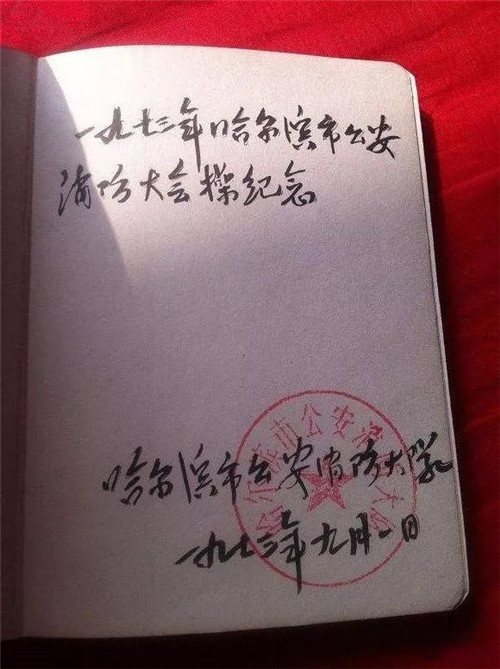 一九七三年哈尔滨市公安
消防大会操纪念
哈尔滨市公安消防大队
一九七三年九月一日
哈尔滨市公安消防大队